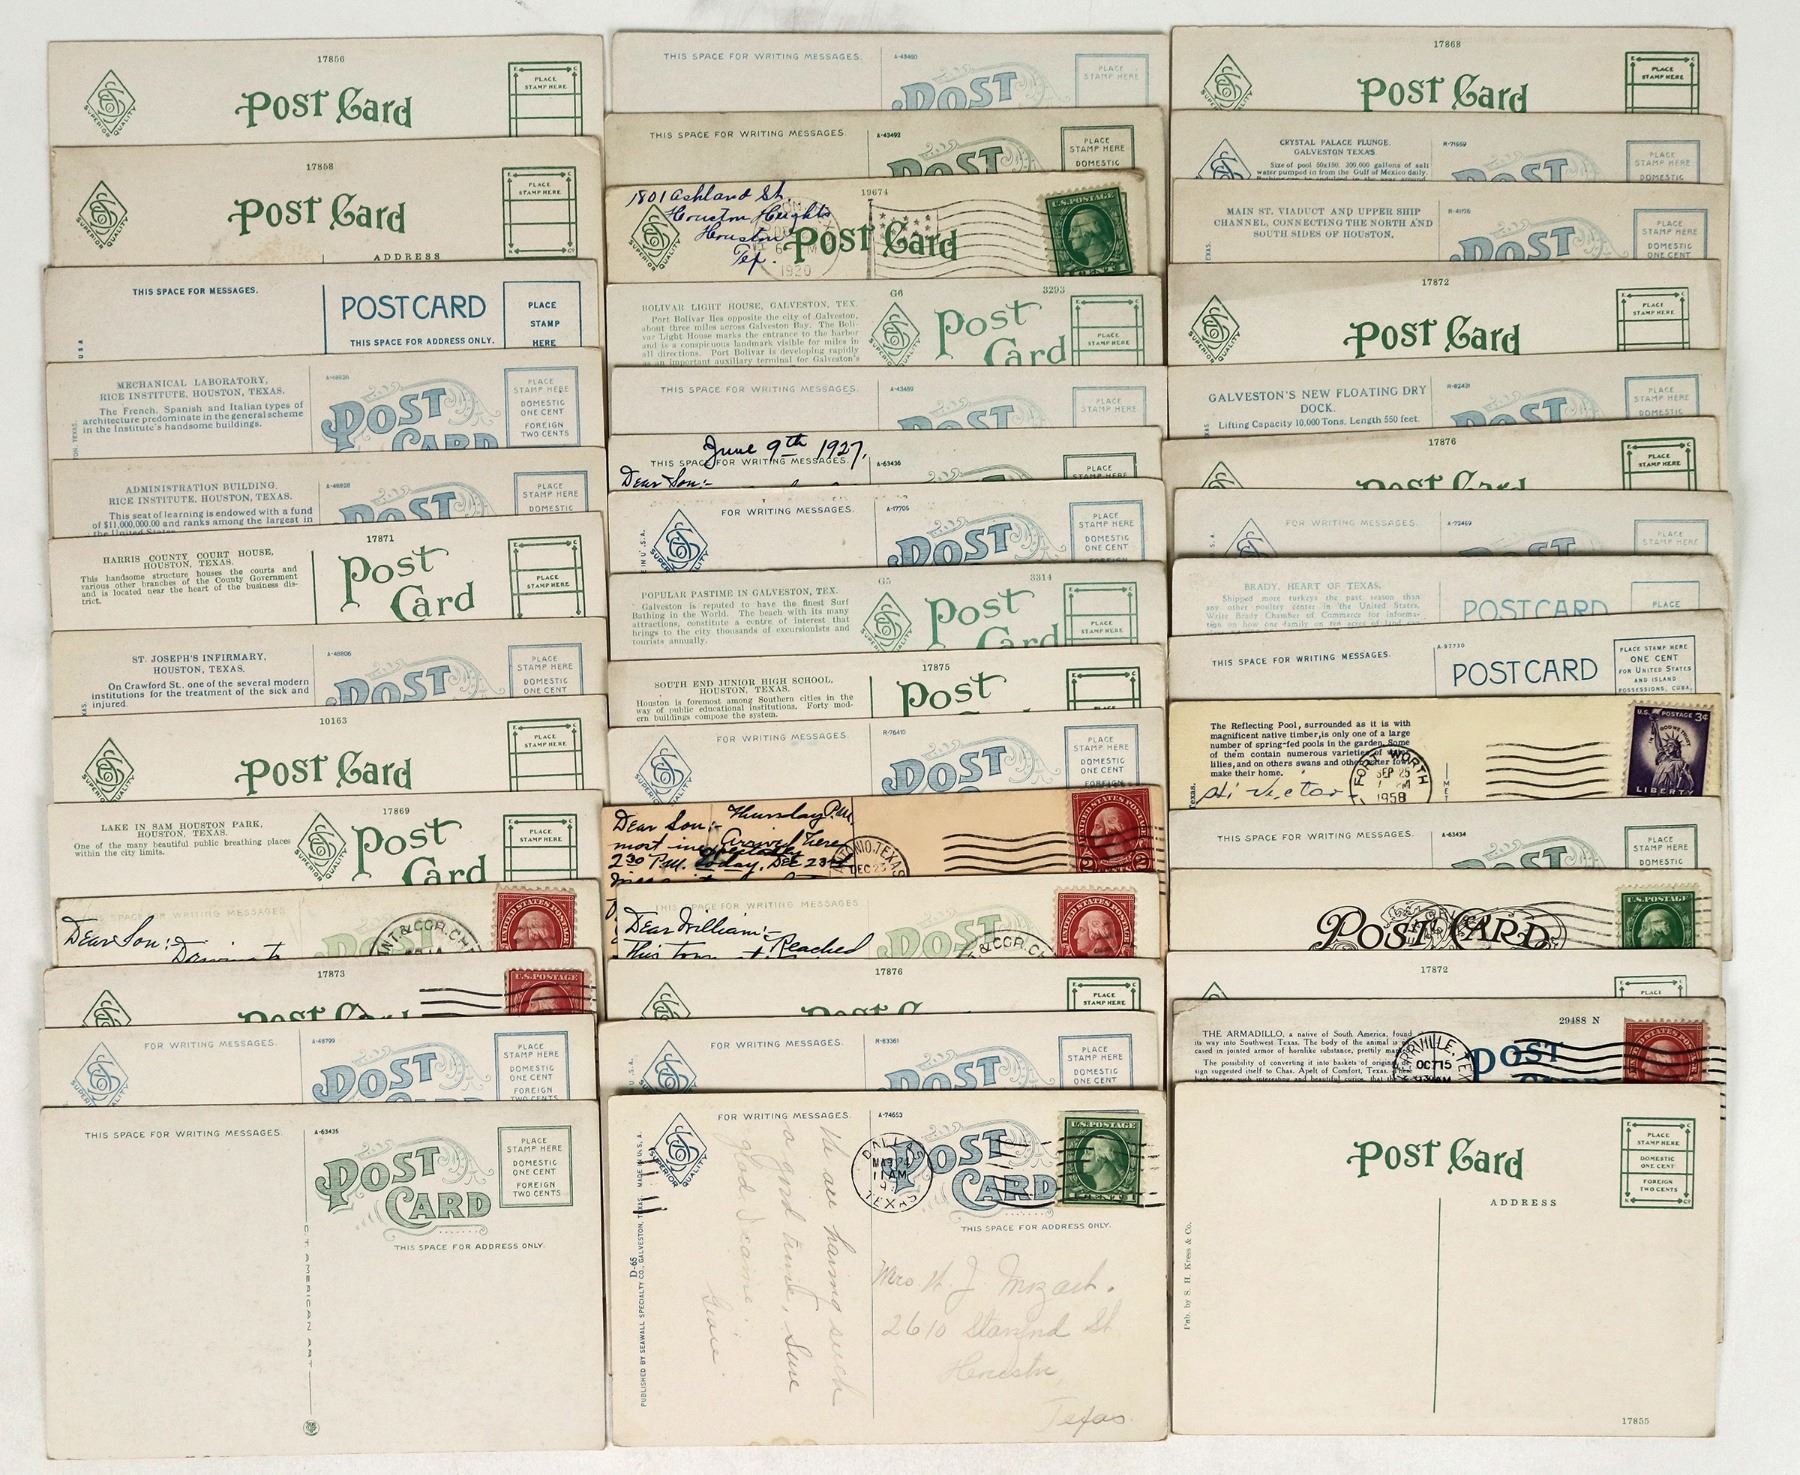 17856
PLACE
STAMP HERE
SUPERIOR QUALITY
Post Card
17858
PLACE
STAMP HERE
SUPERIOR QUALITY
Post Card
ADDRESS
THIS SPACE FOR MESSAGES.
POST CARD
THIS SPACE FOR ADDRESS ONLY.
PLACE
STAMP
HERE
USA
MECHANICAL LABORATORY,
RICE INSTITUTE, HOUSTON, TEXAS.
The French, Spanish and Italian types of
architecture predominate in the general scheme
in the Institute's handsome buildings.
POST
CARD
PLACE
STAMP HERE
DOMESTIC
ONE CENT
FOREIGN
TWO CENTS
ADMINISTRATION BUILDING,
RICE INSTITUTE, HOUSTON, TEXAS.
This seat of learning is endowed with a fund
of $11,000,000.00 and ranks among the largest in
the United States.
POST
PLACE
STAMP HERE
DOMESTIC
ONE CENT
HARRIS COUNTY COURT HOUSE,
HOUSTON, TEXAS.
This handsome structure houses the courts and
various other branches of the County Government
and is located near the heart of the business dis-
trict.
17871
Post
Card
PLACE
STAMP HERE
ST. JOSEPH'S INFIRMARY,
HOUSTON, TEXAS.
On Crawford St., one of the several modern
institutions for the treatment of the sick and
injured.
A-48806
POST
PLACE
STAMP HERE
DOMESTIC
ONE CENT
10163
Post Card
PLACE
STAMP HERE
LAKE IN SAM HOUSTON PARK,
HOUSTON, TEXAS.
One of the many beautiful public breathing places
within the city limits.
17869
SUPERIOR QUALITY
Post
Card
PLACE
STAMP HERE
THIS SPACE FOR WRITING MESSAGES
Dear Son:-
UNITED STATES POSTAGE
17873
Post Card
U.S. POSTAGE
FOR WRITING MESSAGES.
A-48799
POST
PLACE
STAMP HERE
DOMESTIC
ONE CENT
FOREIGN
TWO CENTS
THIS SPACE FOR WRITING MESSAGES.
A-63435
POST
CARD
PLACE
STAMP HERE
DOMESTIC
ONE CENT
FOREIGN
TWO CENTS
THIS SPACE FOR ADDRESS ONLY.
THIS SPACE FOR WRITING MESSAGES.
A-43490
POST
PLACE
STAMP HERE
THIS SPACE FOR WRITING MESSAGES
A-43492
POST
PLACE
STAMP HERE
DOMESTIC
1801 Ashland St,
Houston Heights
Houston
Tex.
19674
1920
SUPERIOR QUALITY
Post Card
U.S. POSTAGE
1 CENT 1
BOLIVAR LIGHT HOUSE, GALVESTON, TEX.
Port Bolivar lies opposite the city of Galveston,
about three miles across Galveston Bay. The Boli-
var Light House marks the entrance to the harbor
and is a conspicuous landmark visible for miles in
all directions. Port Bolivar is developing rapidly
as an important auxiliary terminal for Galveston's
G6
3293
SUPERIOR QUALITY
Post
Card
THIS SPACE FOR WRITING MESSAGES.
A-43489
POST
PLACE
STAMP HERE
DOMESTIC
June 9th 1927,
THIS SPACE FOR WRITING MESSAGES.
A-63436
PLACE
STAMP HERE
Dear Son:-
FOR WRITING MESSAGES.
A-17705
POST
PLACE
STAMP HERE
DOMESTIC
ONE CENT
POPULAR PASTIME IN GALVESTON, TEX.
Galveston is reputed to have the finest Surf
Bathing in the World. The beach with its many
attractions, constitute a centre of interest that
brings to the city thousands of excursionists and
tourists annually.
G5
3314
SUPERIOR QUALITY
Post
Card
PLACE
STAMP HERE
SOUTH END JUNIOR HIGH SCHOOL,
HOUSTON, TEXAS.
Houston is foremost among Southern cities in the
way of public educational institutions. Forty mod-
ern buildings compose the system.
17875
Post
PLACE
STAMP HERE
FOR WRITING MESSAGES.
R-76410
POST
PLACE
STAMP HERE
DOMESTIC
ONE CENT
FOREIGN
Dear Son:- Thursday P.M.
Arrived Here
2:30 P.M. today, Dec 23rd
ANTONIO, TEXAS
DEC 23
UNITED STATES POSTAGE
THIS SPACE FOR WRITING MESSAGES
Dear William:-
This town Reached
UNITED STATES POSTAGE
17876
PLACE
STAMP HERE
FOR WRITING MESSAGES.
R-83361
POST
PLACE
STAMP HERE
DOMESTIC
ONE CENT
FOR WRITING MESSAGES.
A-74653
SUPERIOR QUALITY
MADE IN U.S.A.
POST
CARD
DALLAS
TEXAS
U.S. POSTAGE
THIS SPACE FOR ADDRESS ONLY.
We are having such
a good time. Sure
glad I came.
D-65
PUBLISHED BY SEAWALL SPECIALTY CO., GALVESTON, TEXAS.
Houston
Texas.
17868
Post Card
SUPERIOR QUALITY
PLACE
STAMP HERE
CRYSTAL PALACE PLUNGE,
GALVESTON TEXAS
Size of pool 50x150. 200,000 gallons of salt
water pumped in from the Gulf of Mexico daily.
POST
PLACE
STAMP HERE
DOMESTIC
MAIN ST. VIADUCT AND UPPER SHIP
CHANNEL, CONNECTING THE NORTH AND
SOUTH SIDES OF HOUSTON.
POST
PLACE
STAMP HERE
DOMESTIC
ONE CENT
17872
Post Card
SUPERIOR QUALITY
PLACE
STAMP HERE
GALVESTON'S NEW FLOATING DRY
DOCK.
Lifting Capacity 10,000 Tons. Length 550 feet.
R-82431
POST
PLACE
STAMP HERE
DOMESTIC
17876
Post Card
PLACE
STAMP HERE
FOR WRITING MESSAGES.
POST
PLACE
STAMP HERE
DOMESTIC
ONE CENT
BRADY, HEART OF TEXAS.
Shipped more turkeys the past season than
any other poultry center in the United States.
Write Brady Chamber of Commerce for informa-
tion on how one family on ten acres of land
POST CARD
PLACE
THIS SPACE FOR WRITING MESSAGES.
A-97730
POST CARD
PLACE STAMP HERE
ONE CENT
FOR UNITED STATES
AND ISLAND
POSSESSIONS, CUBA,
The Reflecting Pool, surrounded as it is with
magnificent native timber, is only one of a large
number of spring-fed pools in the garden. Some
of them contain numerous varieties of water
lilies, and on others swans and other water fowl
make their home.
Hi Victor-
FORT WORTH
SEP 25
1958
U.S. POSTAGE 3¢
LIBERTY
THIS SPACE FOR WRITING MESSAGES.
A-63434
POST
PLACE
STAMP HERE
DOMESTIC
POST CARD
17872
PLACE
THE ARMADILLO, a native of South America, found
its way into Southwest Texas. The body of the animal is
cased in jointed armor of hornlike substance, prettily
The possibility of converting it into baskets of original
sign suggested itself to Chas. Apelt of Comfort, Texas.
29488 N
POST
KERRVILLE, TEX
OCT 15
UNITED STATES POSTAGE
Post Card
ADDRESS
PLACE
STAMP HERE
DOMESTIC
ONE CENT
FOREIGN
TWO CENTS
Pub. by S. H. Kress & Co.
17855